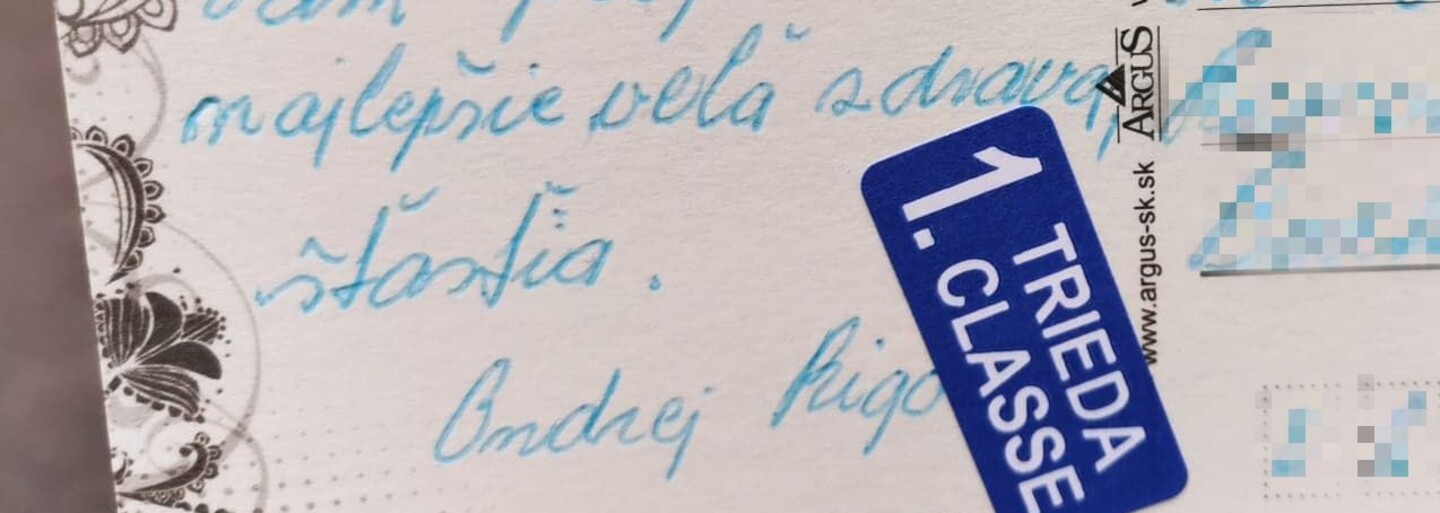 najlepšie veľa zdravia
šťastia.
Ondrej Rigo
1. TRIEDA
CLASSE
ARGUS
www.argus-sk.sk